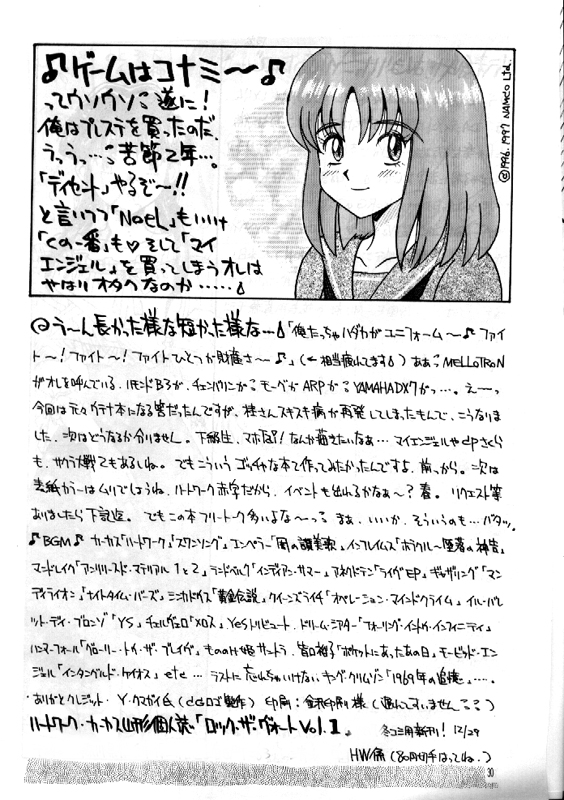 ♪ゲームはコナミ〜♪
ってウソウソ 遂に!
俺はプレステを買ったのだ
うっうっ… 苦節2年…。
「ディセント」やるぞ〜!!
と言いつつ「NOëL」もいいけ
「くの一番」も♡そして「マイ
エンジェル」を買ってしまうオレは
やはりオタクなのか……
©1996.1997 NAMCO Ltd.
う〜ん長かった様な短かった様な…「俺たっちゃハダカがユニフォーム〜♪ファイ
ト〜!ファイト〜!ファイトひとつが財産さ〜♪」(←相当疲れてます)ああ MELLOTRON
がオレを呼んでいる。ハモンドB3が、チェンバリンが モーグが ARPが YAMAHA DX7がっ…。え〜っ
今回は元々 本になる筈だったんですが、桂さんスキスキ病が再発してしまったもんで、こうなりま
した。次はどうなるか分りません。下級生、マホ なんか描きたいなぁ… マイエンジェルやdpさくら
も、サクラ大戦てもあるしね。でもこういうゴッチャな本て作ってみたかったんですよ、前っから。次は
表紙カラーはムリでしょうね、ハートワーク赤字だから、イベントも出れるかなぁ〜?春。リクエスト等
ありましたら下記迄。でもこの本フリートーク多いよな〜っ まぁ、いいか、そういうのも…バタッ。
♪BGM♪カーカス「ハートワーク」「スワンソング」エンペラー「闇の讃美歌」、インフレイムス「 の神告」
マーシレイク「アンリリースド・マテリアル1と2」ランドベルク「インディアン・サマー」アネクドテン「ライヴEP」ギャザリング「マン
ディライオン」「ナイトタイム・バーズ」ミカドゲイス「黄金伝説」クイーンズライチ「オペレーション・マインドクライム」イル・バレ
ット・ディ・ブロンゾ「YS」チェルヴェロ「メロス」Yesトリビュート、ドリーム・シアター「フォーリング・イントゥ・インフィニティ」
ハンマーフォール「グローリー・トゥ・ザ・ブレイヴ」もののけ姫サントラ、皆口裕子「ポケットにあったあの日」モービッド・エン
ジェル「インタングルド・ケイオス」etc… ラストに忘れちゃいけないキング・クリムゾン「1969年の追憶」…。
ありがとクレジット・Y・クマガイ氏(ロゴ製作)印刷:金沢印刷様(遅れてすいません)
ハートワーク・カーカス山形個人誌「ロック・ザ・ヴォート Vol.1」 冬コミ用新刊!12/29
HW係(80円切手はってね。)
30